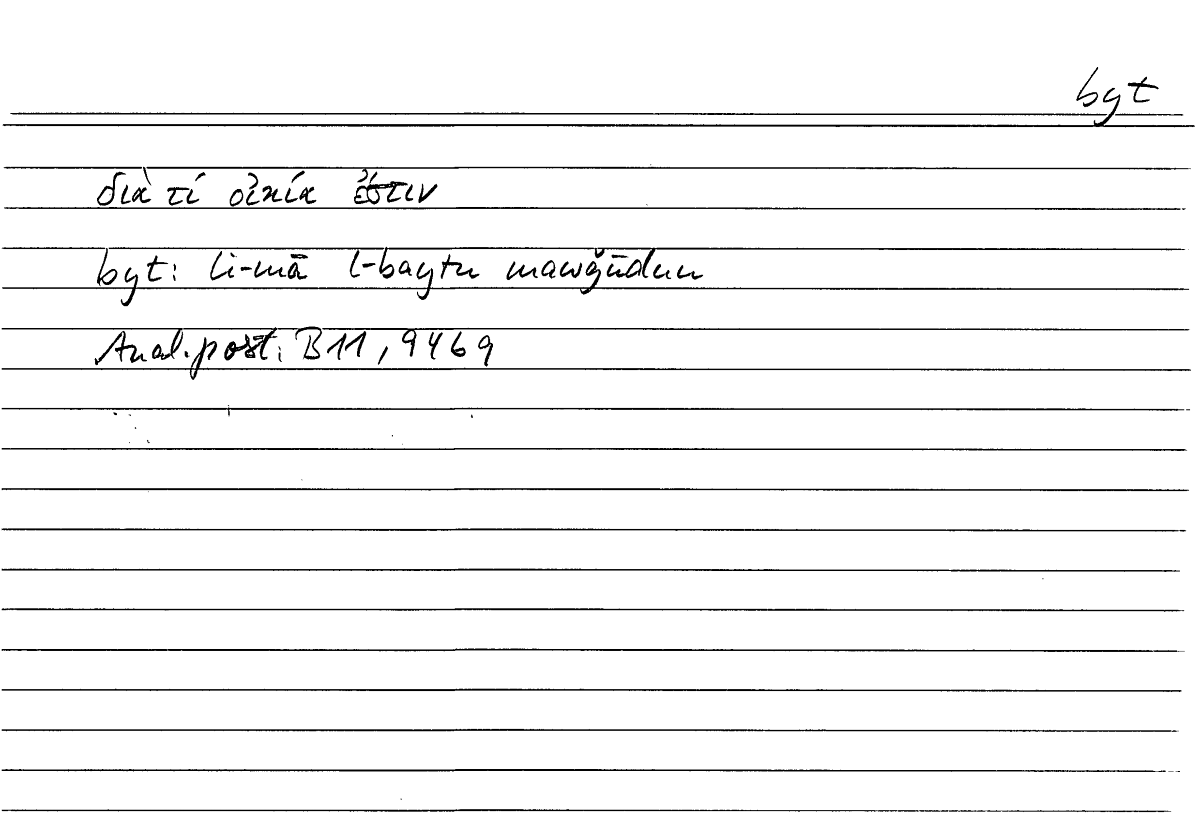 byt
διὰ τί οἰκία ἔστιν
byt: li-mā l-baytu mawǧūdun
Anal. post. B11, 94b9